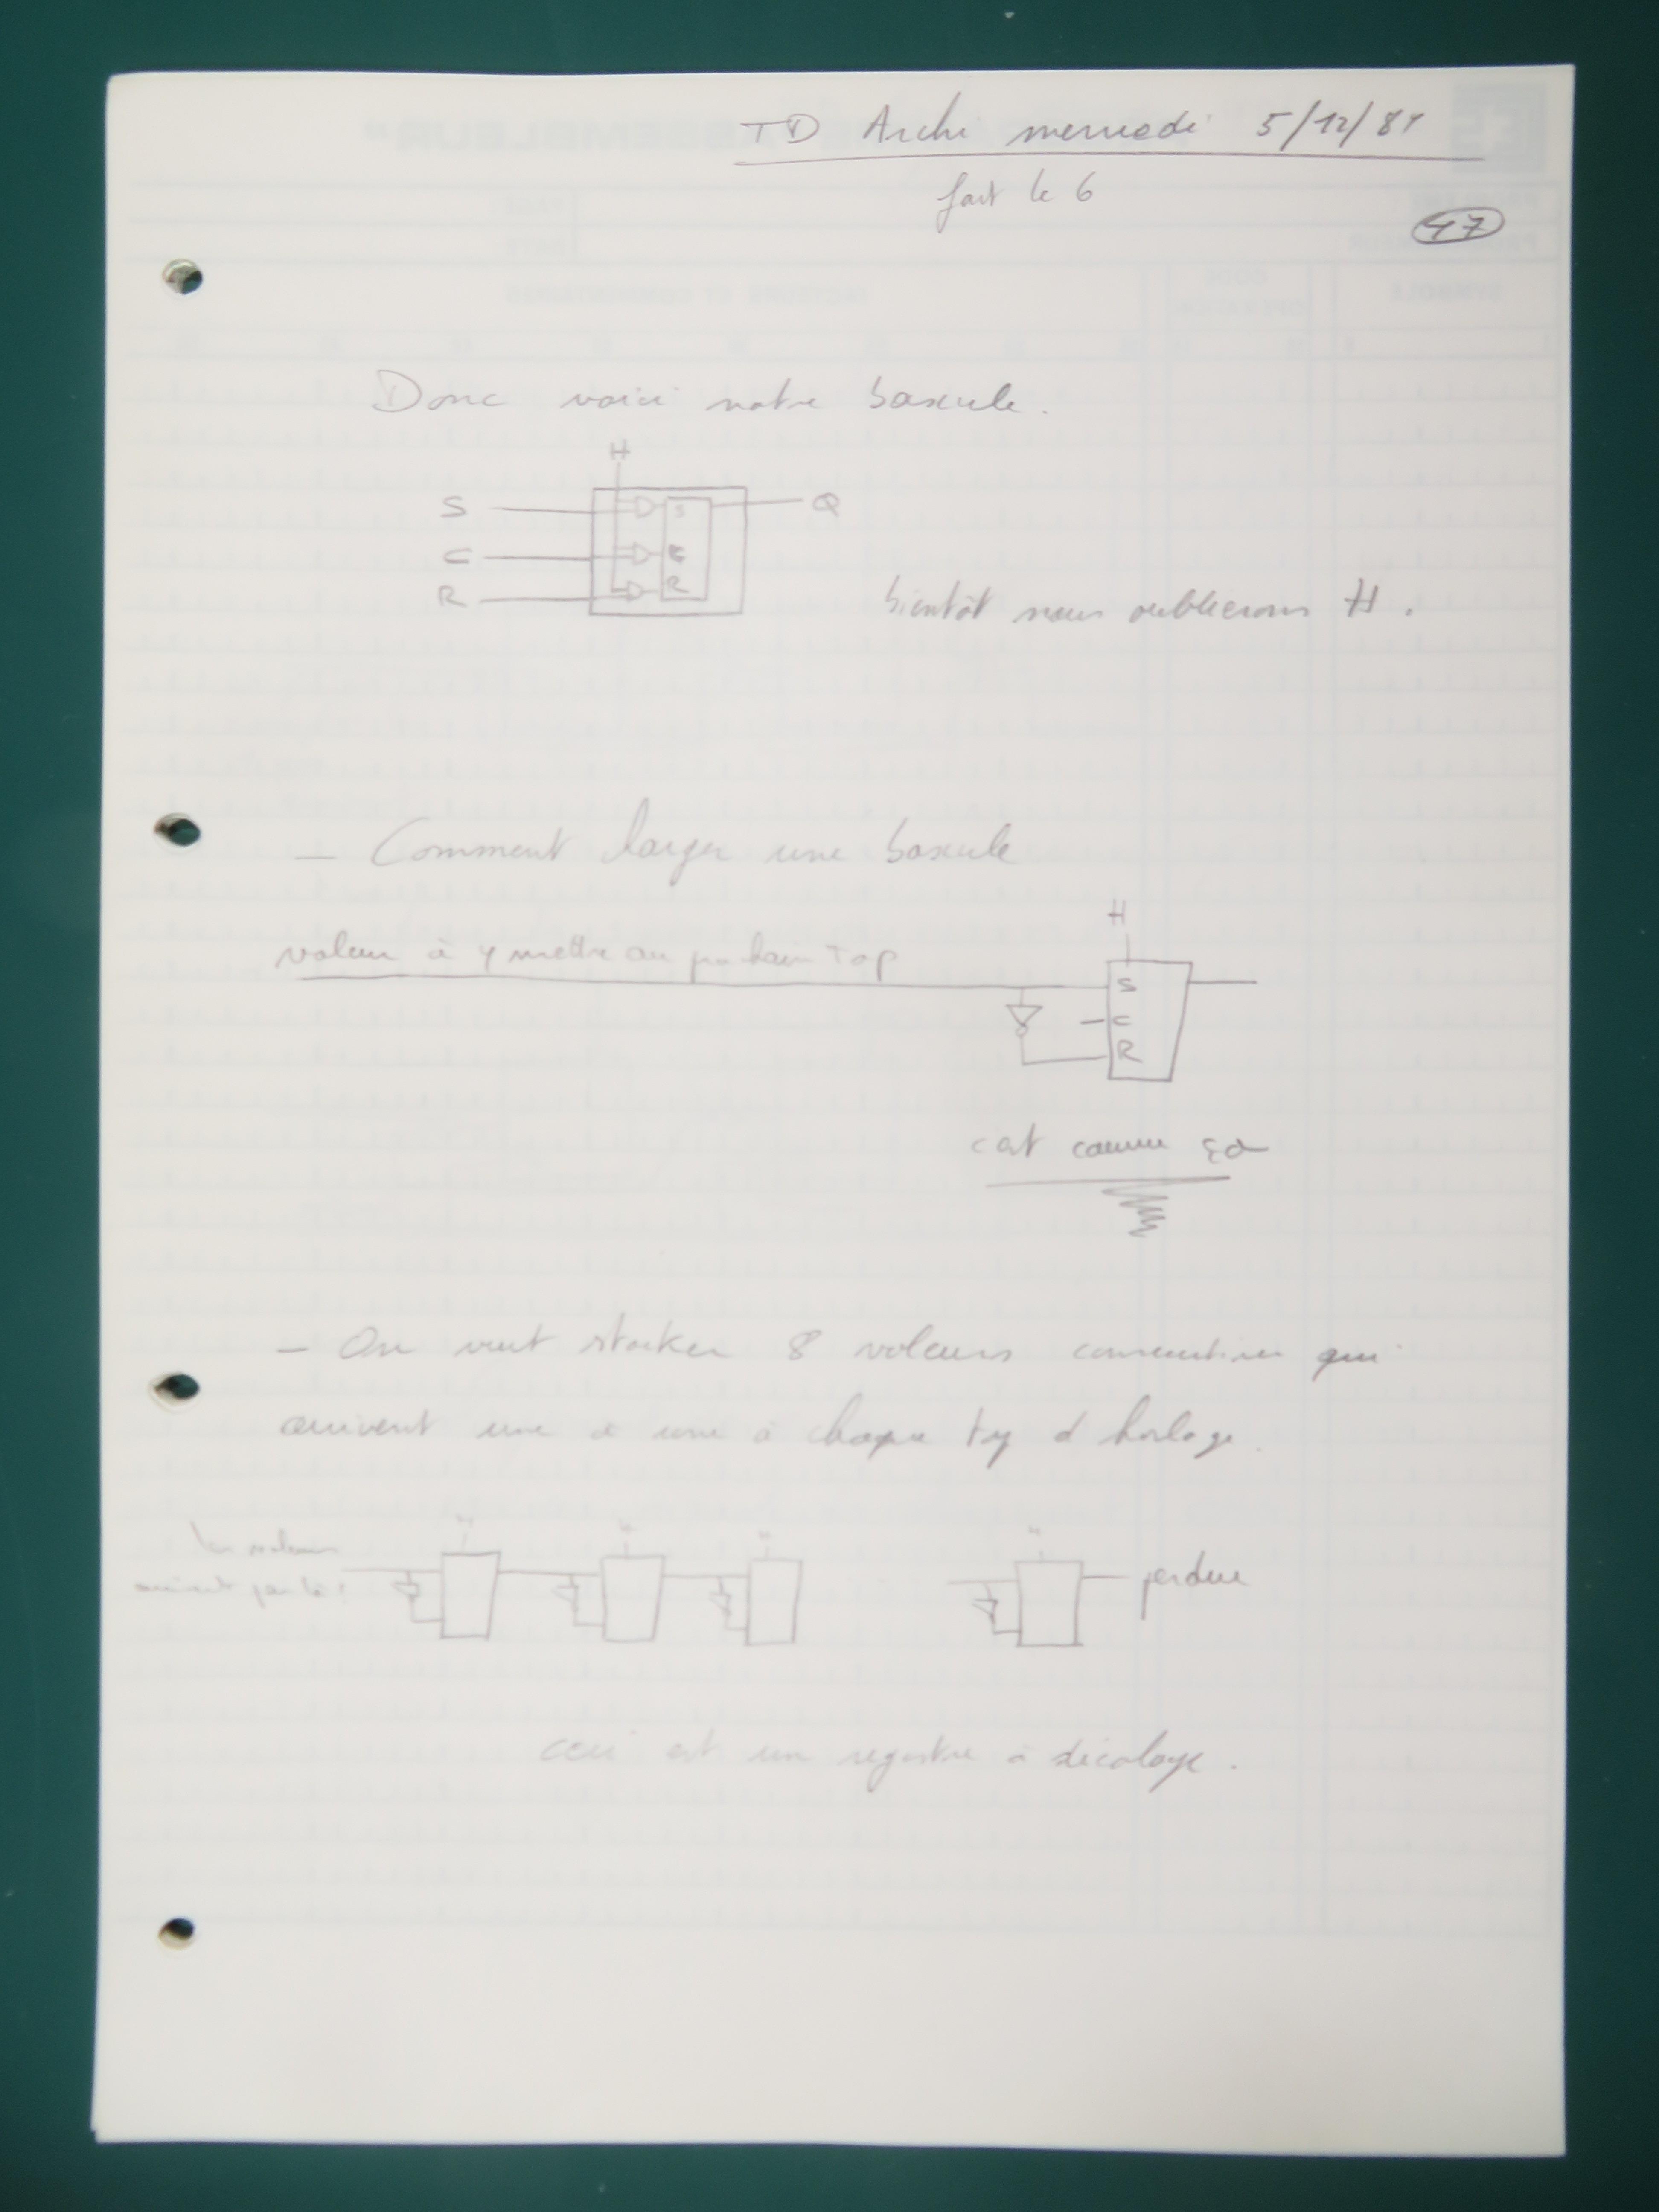 TD Archi mercredi 5/12/84
fait le 6
47
Donc voici notre bascule.
H
S
S
Q
C
C
R
R
bientôt nous oublierons H.
— Comment charger une bascule
H
valeur à y mettre au prochain Top
S
C
R
c'est comme ça
— On veut stocker 8 valeurs consecutives qui
arrivent une à une à chaque top d'horloge.
H
H
H
H
les valeurs
arrivent par là :
perdue
ceci est un registre à décalage.